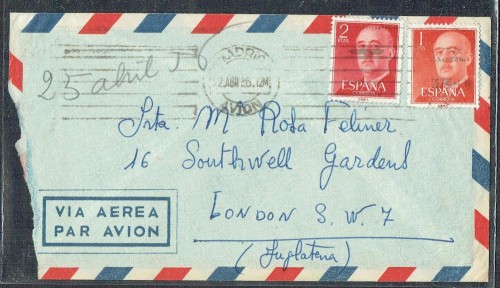 25 abril 56
MADRID
2 ABR 56. 12M
AVION
2
PTAS
ESPAÑA
CORREOS
1
ESPAÑA
CORREOS
Srta. M Rosa Felmer
16 Southwell Gardens
LONDON S.W.7
(Inglaterra)
VIA AEREA
PAR AVION